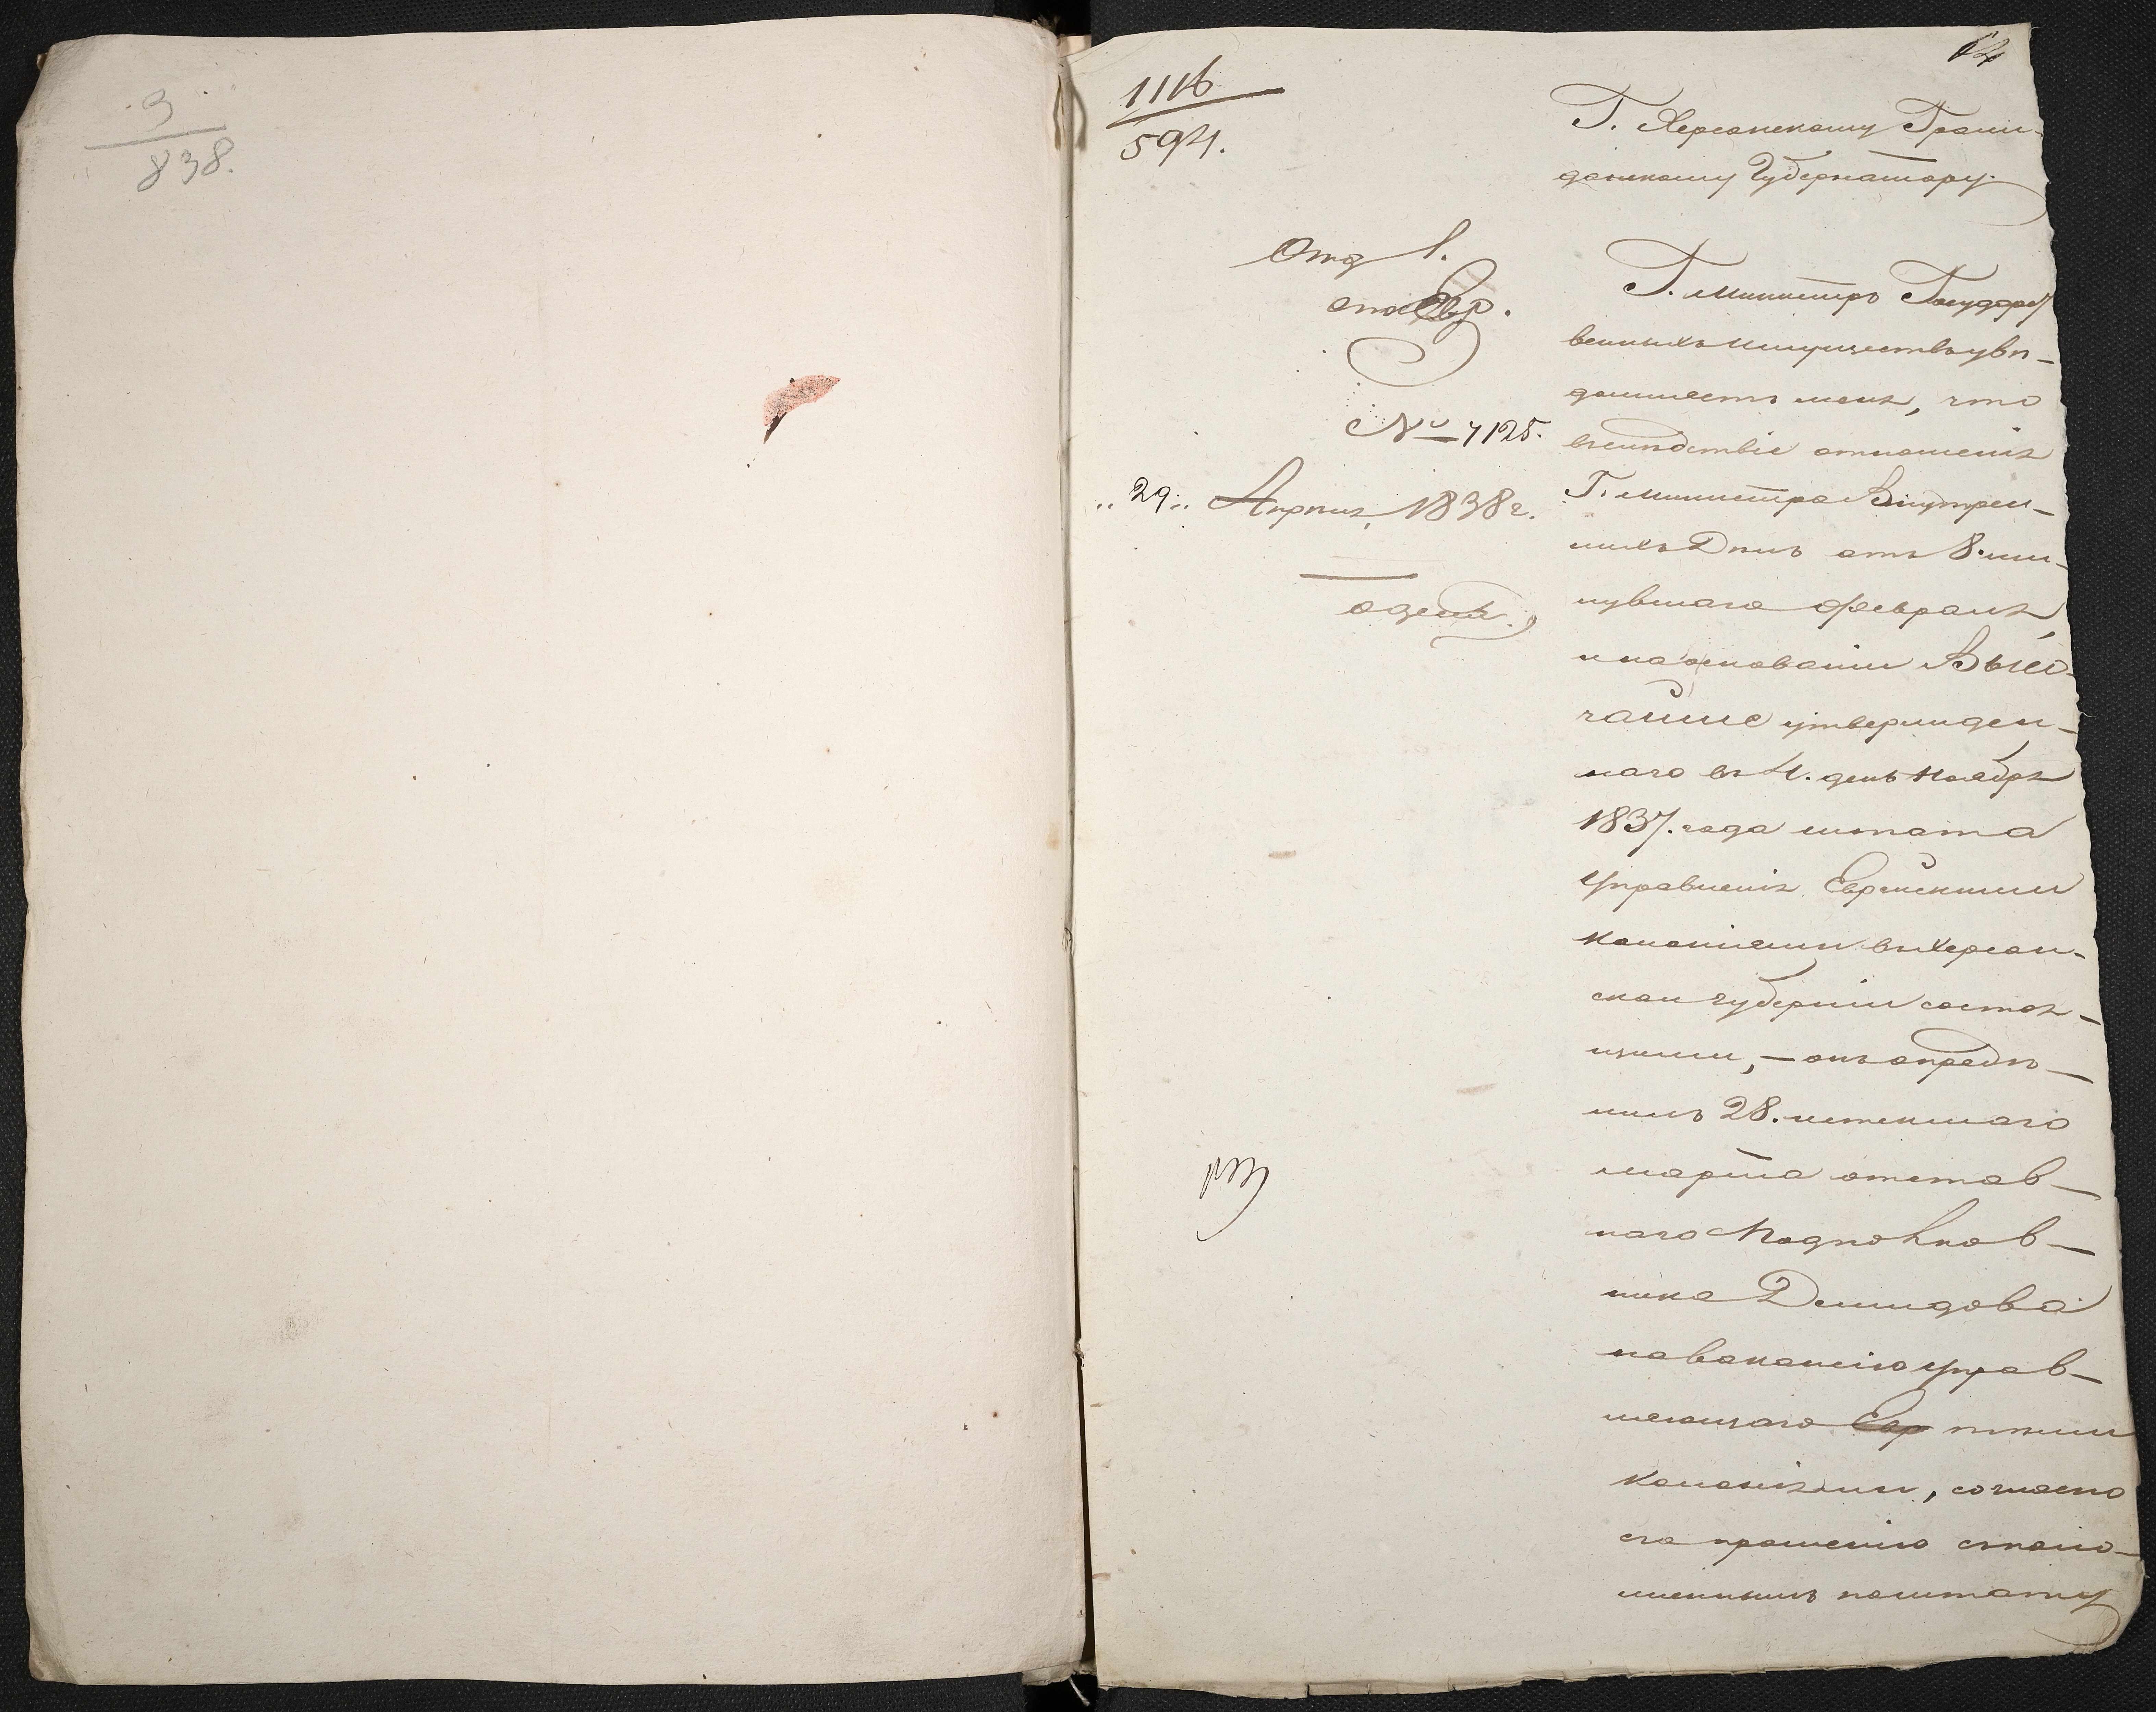 3
838.
1116
594.
Отд 1.
№ 4125.
"29" Апрѣля 1838 г.
Одесса.
Г. Херсонскому Граж-
данскому Губернатору.
Г. Министръ Государст
венныхъ имуществъ увѣ-
домляетъ меня, что
вслѣдствіе отношенія
Г. Министра Внутрен-
нихъ Дѣлъ отъ 8. ми-
нувшаго февраля,
и на основаніи Высо-
чайше утвержден-
наго въ 4. день Ноября
1837. года штата
Управленія Еврейскими
колоніями въ Херсон-
ской губерніи состоя-
щими, – онъ опредѣ-
лилъ 28. истекшаго
марта отстав-
наго Подполков-
ника Демидова
на ваканcію управ-
ляющаго тѣми
колоніями, согласно
его прошенію съ поло-
женнымъ по штату